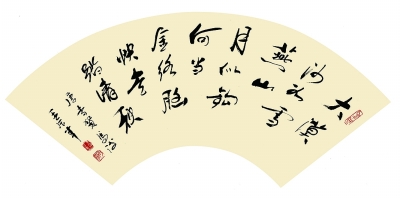 大漠
沙如雪
燕山
月似钩
何当
金络脑
快走
踏清秋
唐李贺马诗